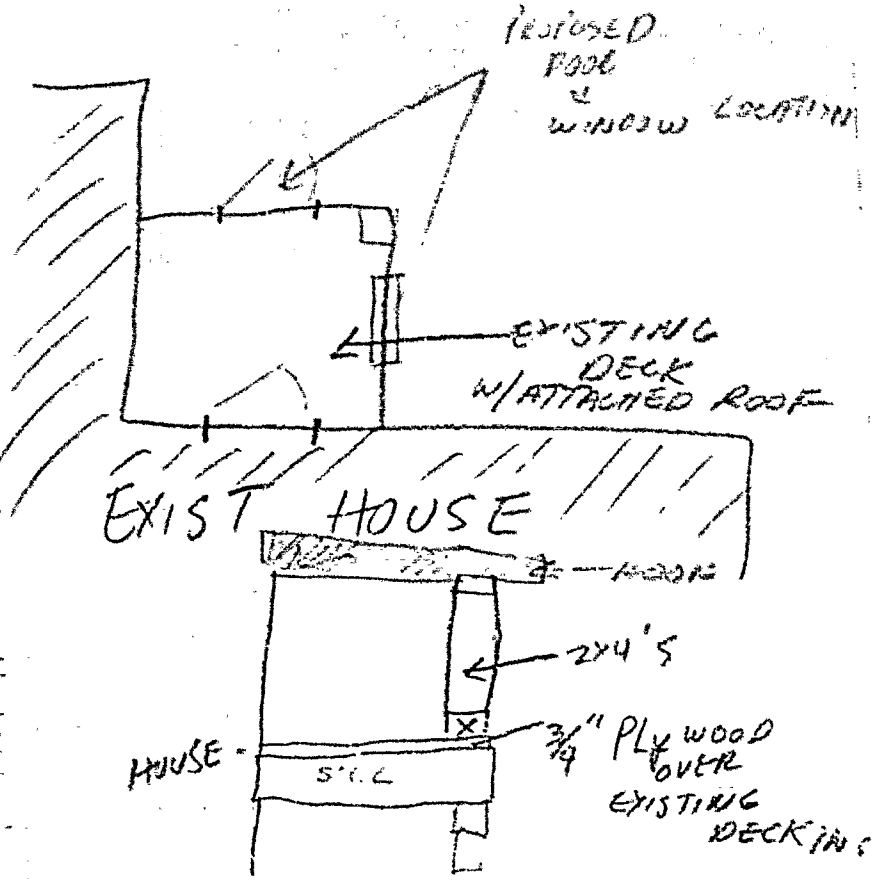 PROPOSED
DOOR
&
WINDOW LOCATION
EXISTING
DECK
W/ATTACHED ROOF
EXIST HOUSE
ROOF
2X4'S
3/4" PLYWOOD
OVER
EXISTING
DECKING
HOUSE